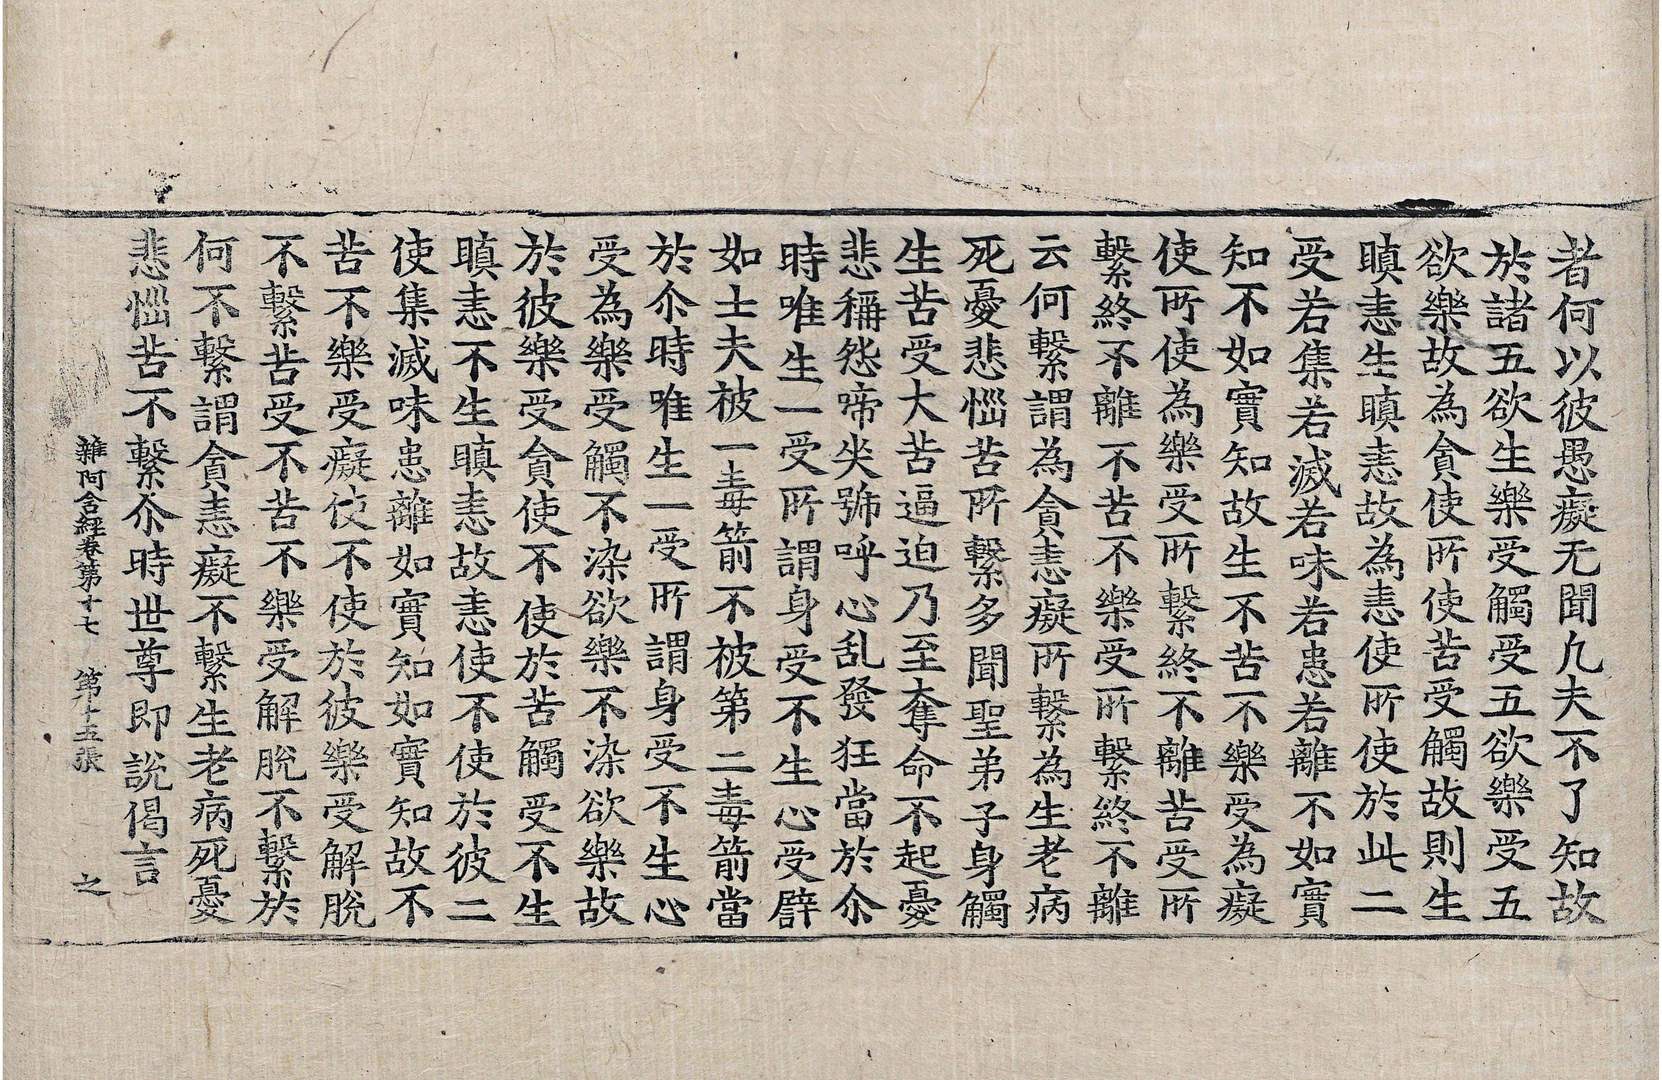 者何以彼愚癡无聞凡夫不了知故
於諸五欲生樂受觸受五欲樂受五
欲樂故為貪使所使苦受觸故則生
瞋恚生瞋恚故為恚使所使於此二
受若集若滅若味若患若離不如實
知不如實知故生不苦不樂受為癡
使所使為樂受所繫終不離苦受所
繫終不離不苦不樂受所繫終不離
云何繫謂為貪恚癡所繫為生老病
死憂悲惱苦所繫多聞聖弟子身觸
生苦受大苦逼迫乃至奪命不起憂
悲稱怨啼哭號呼心乱發狂當於尒
時唯生一受所謂身受不生心受譬
如士夫被一毒箭不被第二毒箭當
於尒時唯生一受所謂身受不生心
受為樂受觸不染欲樂不染欲樂故
於彼樂受貪使不使於苦觸受不生
瞋恚不生瞋恚故恚使不使於彼二
使集滅味患離如實知如實知故不
苦不樂受癡使不使於彼樂受解脫
不繫苦受不苦不樂受解脫不繫於
何不繫謂貪恚癡不繫生老病死憂
悲惱苦不繫尒時世尊即說偈言
雜阿含經卷第十七 第十五張 之